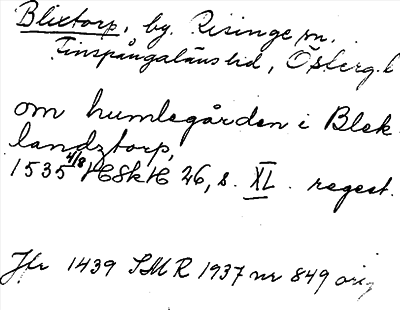 Blixtorp, by. Risinge sn.
Finspångaläns hd, Österg.l
om humlegården i Blek
landztorp,
1535 4/8 HSkH 26, s. XL. regest.
Jfr 1439 SMR 1937 nr 849 orig